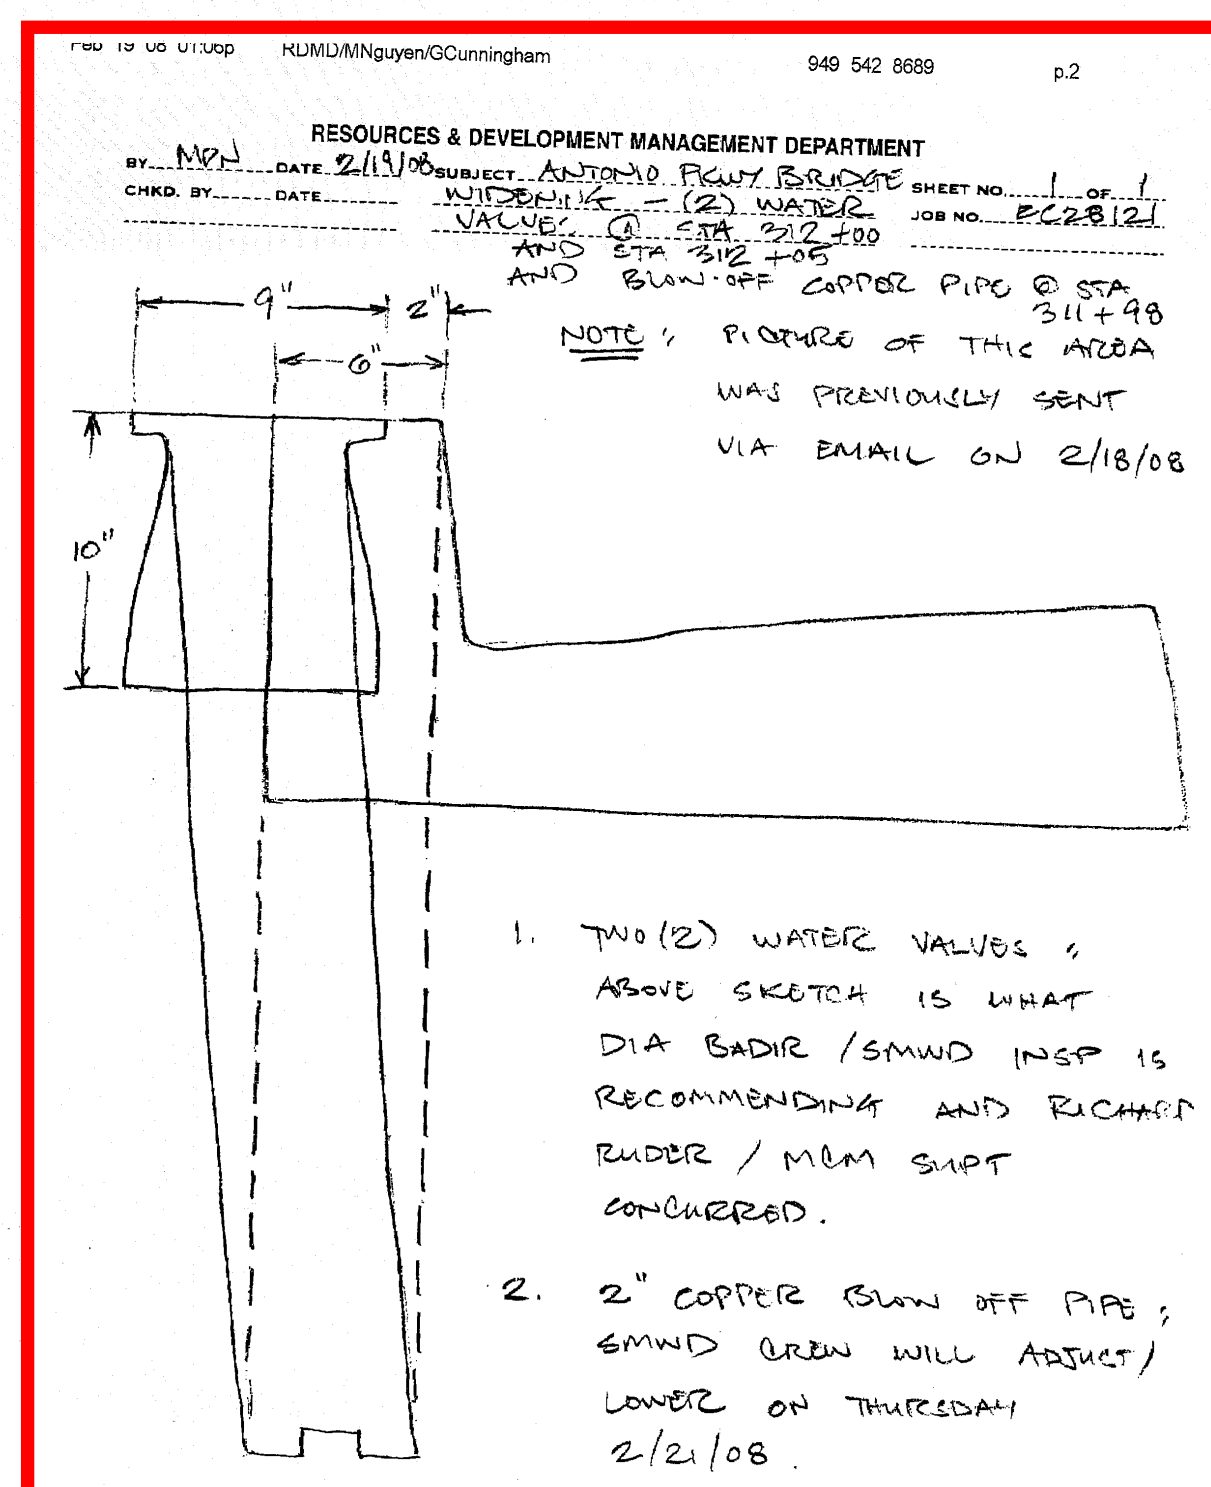 Feb 19 08 01:06p RDMD/MNguyen/GCunningham 949 542 8689 p.2
RESOURCES & DEVELOPMENT MANAGEMENT DEPARTMENT
BY MPN DATE 2/19/08 SUBJECT ANTONIO PKWY BRIDGE SHEET NO. 1 OF 1
CHKD. BY DATE WIDENING - (2) WATER JOB NO. EC28121
VALVES @ STA 312+00
AND STA 312+05
AND BLOW-OFF COPPER PIPE @ STA
311+98
9" 2"
NOTE: PICTURE OF THIS AREA
6"
WAS PREVIOUSLY SENT
VIA EMAIL ON 2/18/08
10"
1. TWO (2) WATER VALVES :
ABOVE SKETCH IS WHAT
DIA BADIR /SMWD INSP IS
RECOMMENDING AND RICHARD
RUDER / MCM SUPT
CONCURRED.
2. 2" COPPER BLOW OFF PIPE :
SMWD CREW WILL ADJUST/
LOWER ON THURSDAY
2/21/08.